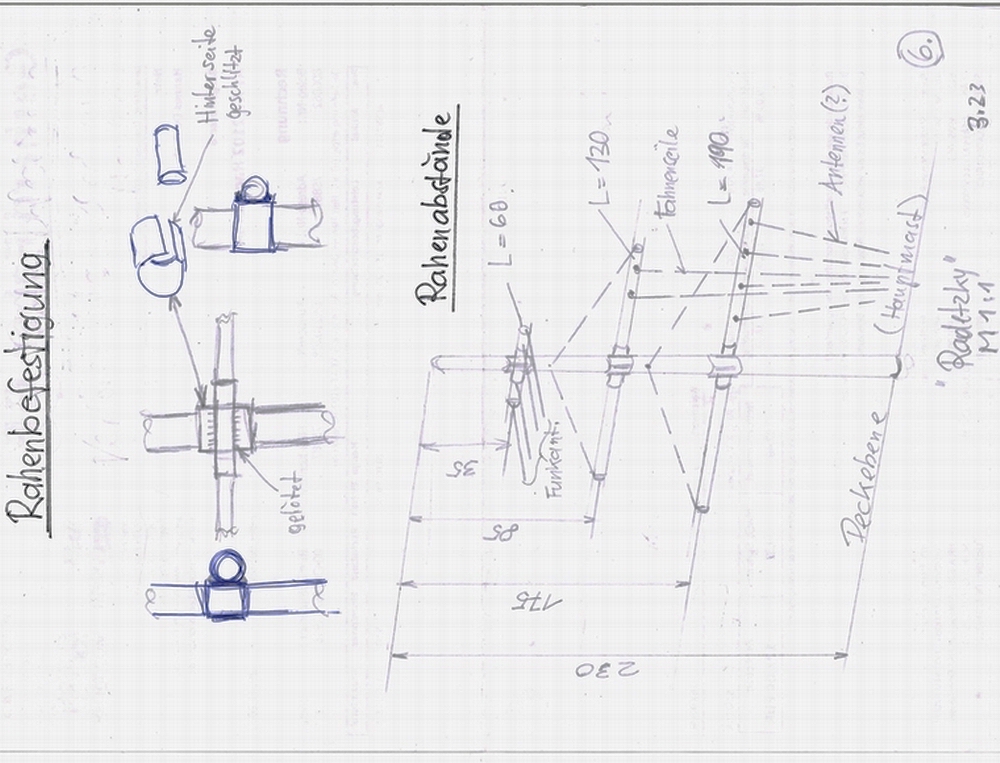 Rahenbefestigung
Hinterseite
geschlitzt
gelötet
Rahenabstände
L = 60.
L = 130.
Fahnenseile
L = 190.
Antennen (?)
Funkant.
35
85
175
230
Deckebene
(Hauptmast)
"Radetzky"
M 1:1
6.
3.23